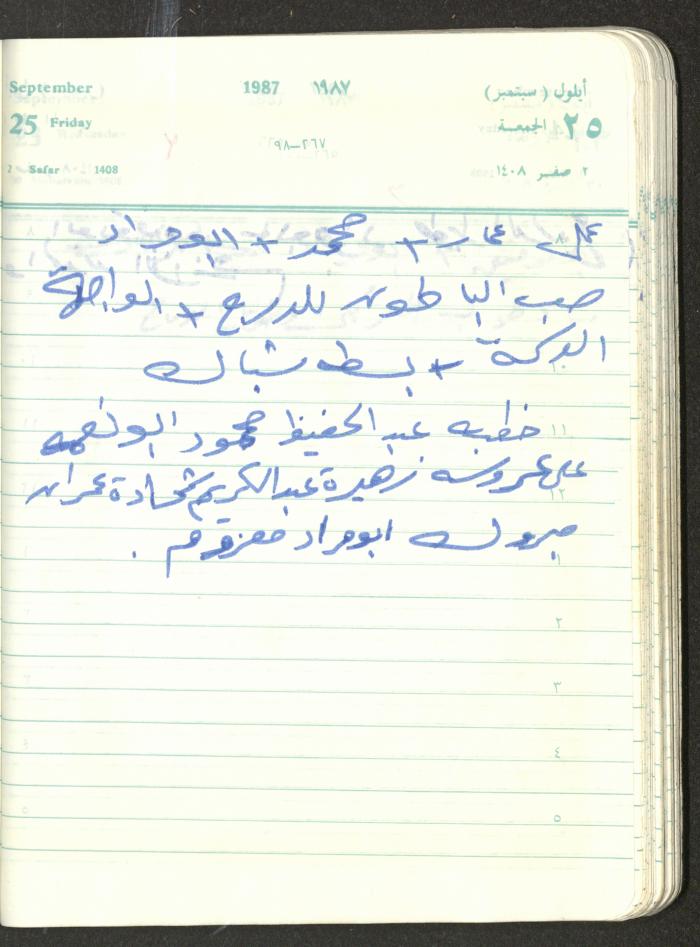 September 1987 ١٩٨٧ أيلول (سبتمبر)
25 Friday ٢٥ الجمعة
٢٦٧-٩٨
2 Safar 1408 ٢ صفر ١٤٠٨
عمل عمار + محمد + ابو مراد
صب الباطون للدرج + الواجهة
+ بسط شباك
١١ خطبه عبد الحفيظ محمود ابو
على عروسه زهيرة عبد الكريم شحادة عمران
١٢
مبروك ابو مراد معزوم .
١
٢
٣
٤
٥